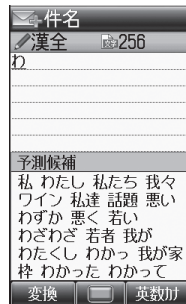 件名
漢全 256
わ
予測候補
私 わたし 私たち 我々
ワイン 私達 話題 悪い
わずか 悪く 若い
わざわざ 若者 我が
わたくし わかっ 我が家
枠 わかった わかって
変換 英数カナ